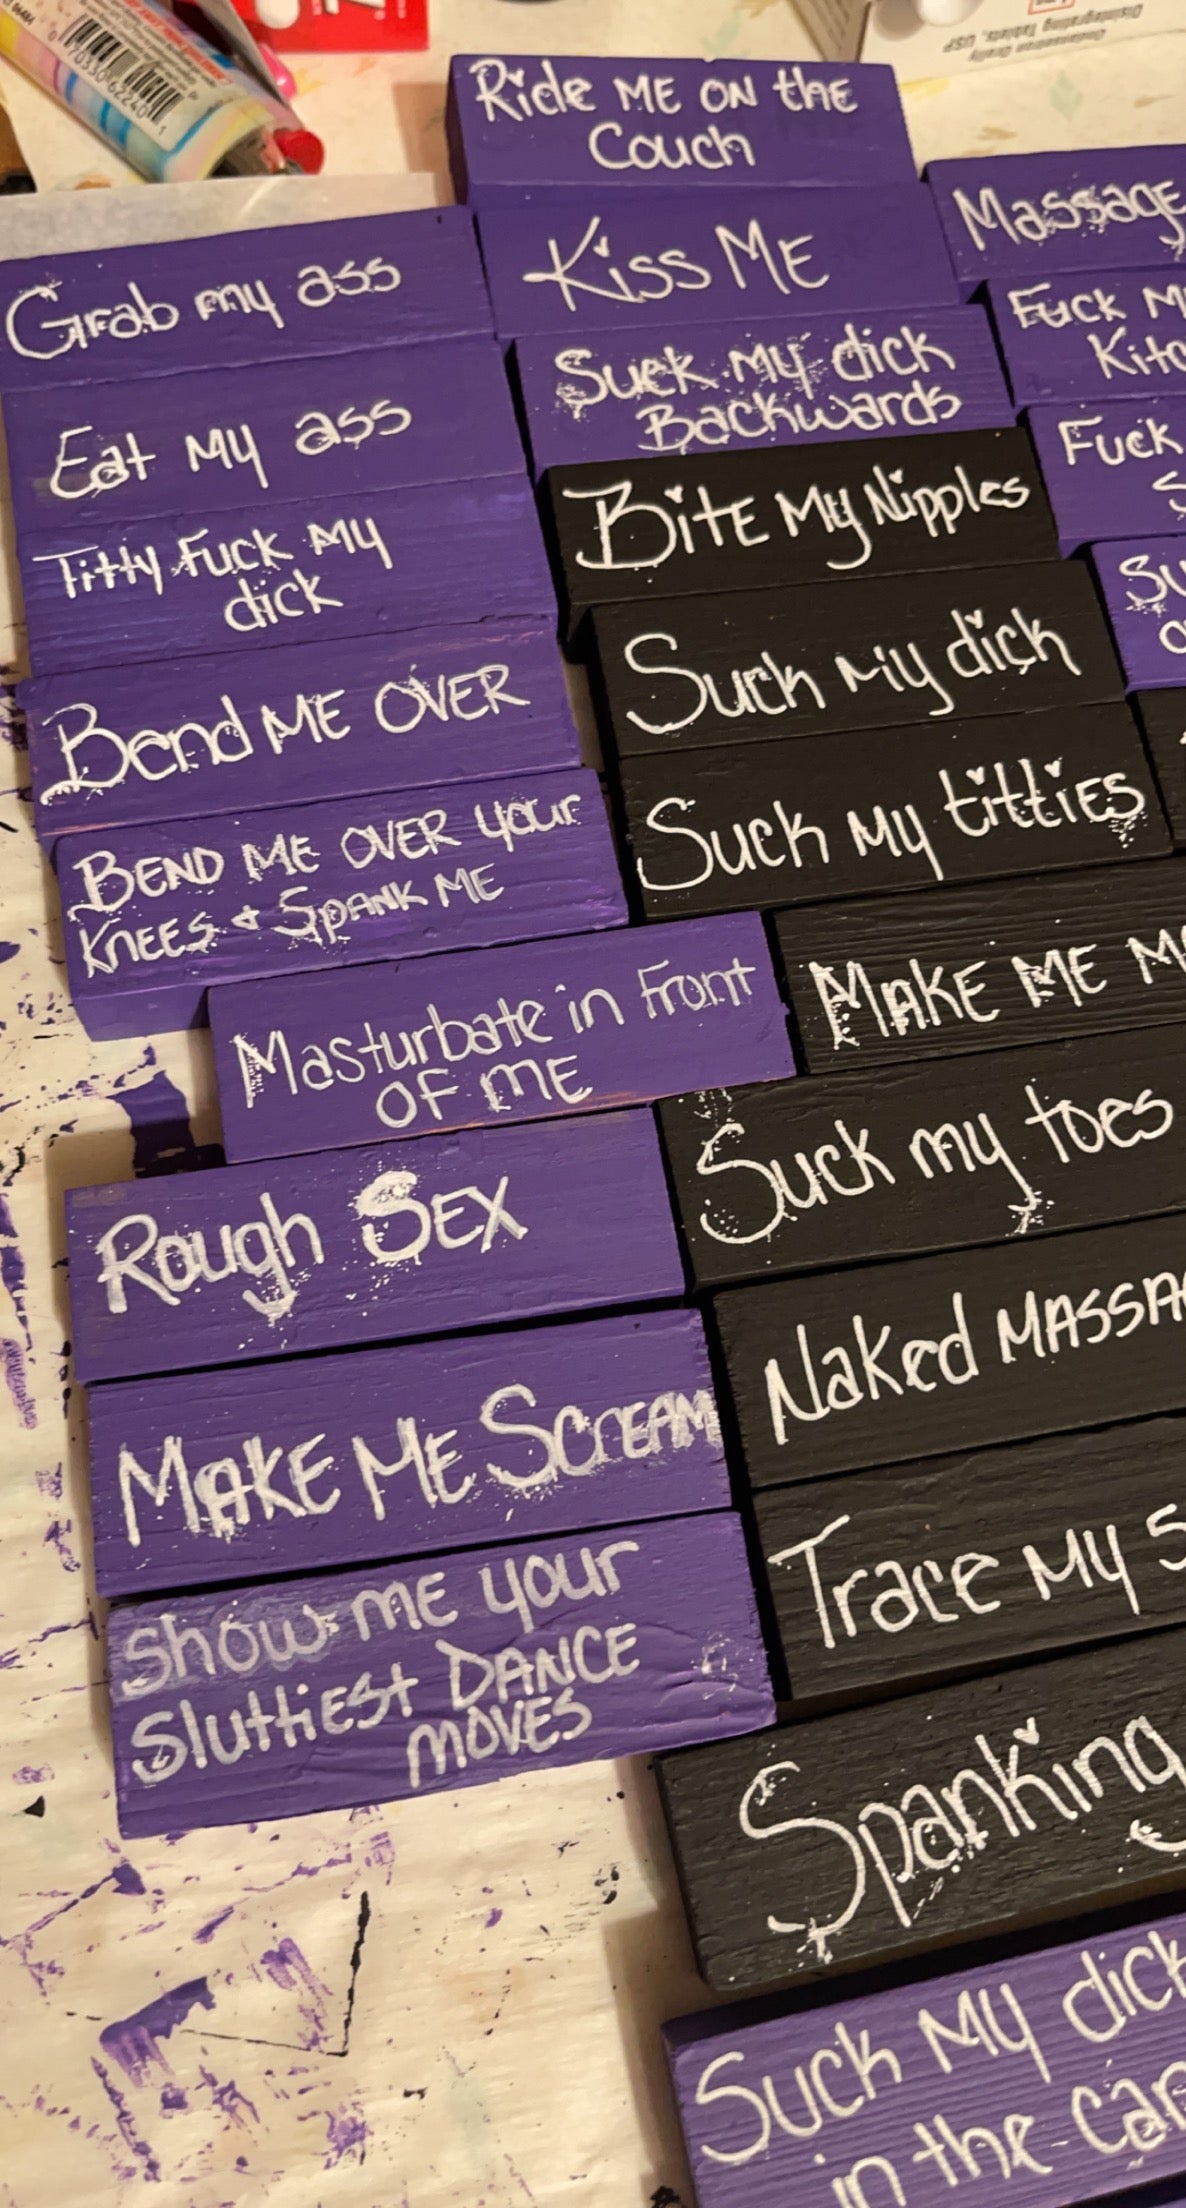 070330622401
Ondansetron Orally
Disintegrating Tablets, USP
Grab my ass
Eat my ass
Titty Fuck my
dick
Bend ME OVER
BEND ME OVER your
KNEES & SPANK ME
Masturbate in Front
OF ME
Rough SEX
MAKE ME SCREAM
Show me your
Sluttiest DANCE
MOVES
Ride ME ON the
Couch
Kiss ME
Suck my dick
Backwards
BitE My Nipples
Suck my dick
Suck My titties
MAKE ME M
Suck my toes
Naked MASSA
Trace My S
Spanking
Suck My dick
in the car
Massage
Fuck M
Kitc
Fuck
S
Su
o